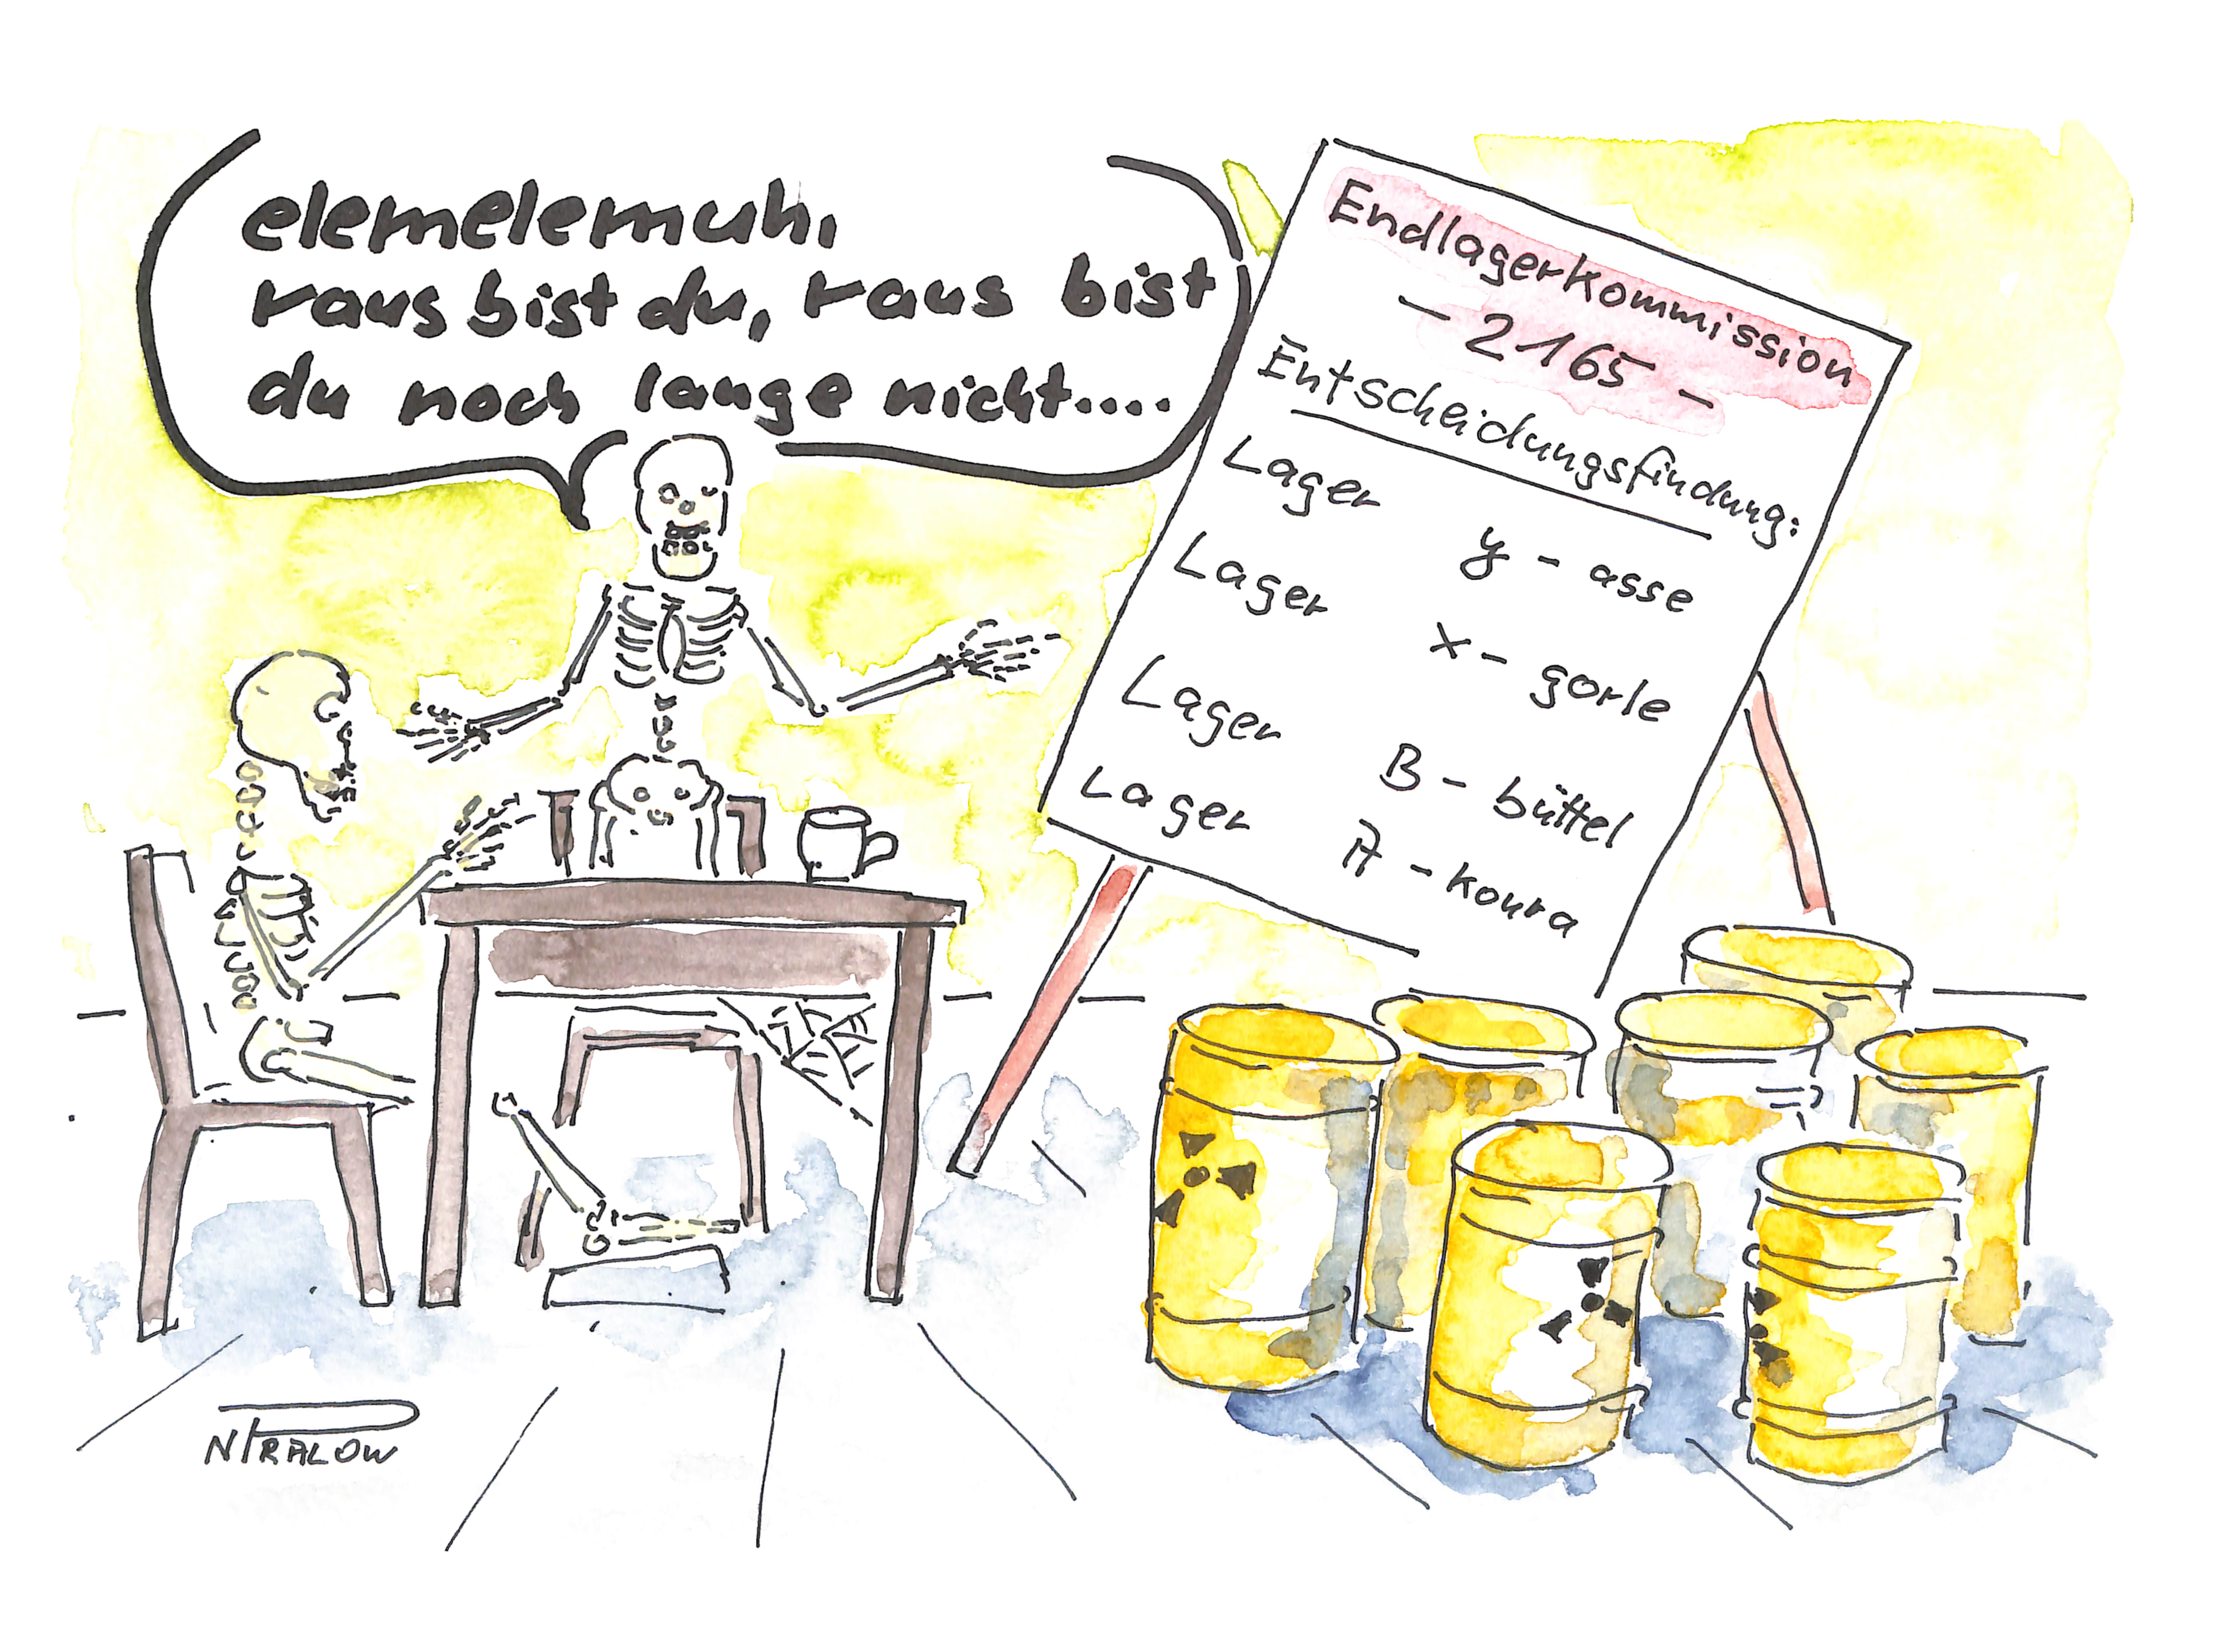 elemelemuh,
raus bist du, raus bist
du noch lange nicht....
Endlagerkommission
- 2165 -
Entscheidungsfindung:
Lager y - asse
Lager x - gorle
Lager B - büttel
Lager A - koura
NTRALOW